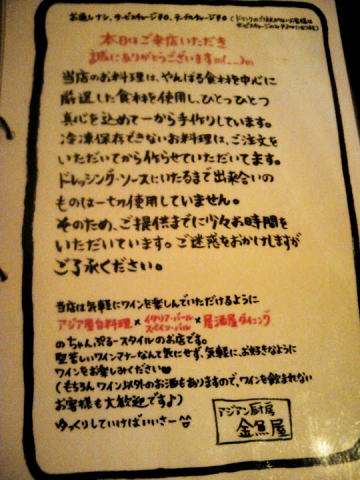 お通しナシ、サービスチャージ¥0、テーブルチャージ¥0 (ドリンクのご注文がないお客様は
サービスチャージ
本日はご来店いただき
誠にありがとうございますm(__)m
当店のお料理は、やんばる食材を中心に
厳選した食材を使用し、ひとつひとつ
真心を込めて一から手作りしています。
冷凍保存できないお料理は、ご注文を
いただいてから作らせていただいてます。
ドレッシング・ソースにいたるまで出来合いの
ものは一切使用していません。
そのため、ご提供までに少々お時間を
いただいています。ご迷惑をおかけしますが
ご了承ください。
当店は気軽にワインを楽しんでいただけるように
アジア屋台料理×イタリア・バール スペイン・バル×居酒屋ダイニング
のちゃんぷるースタイルのお店です。
堅苦しいワインマナーなんて気にせず、気軽に、お好きなように
ワインをお楽しみください♥
(もちろんワイン以外のお酒もありますので、ワインを飲まれない
お客様も大歓迎です♪)
ゆっくりしていけばいいさー^^
アジアン厨房
金魚屋